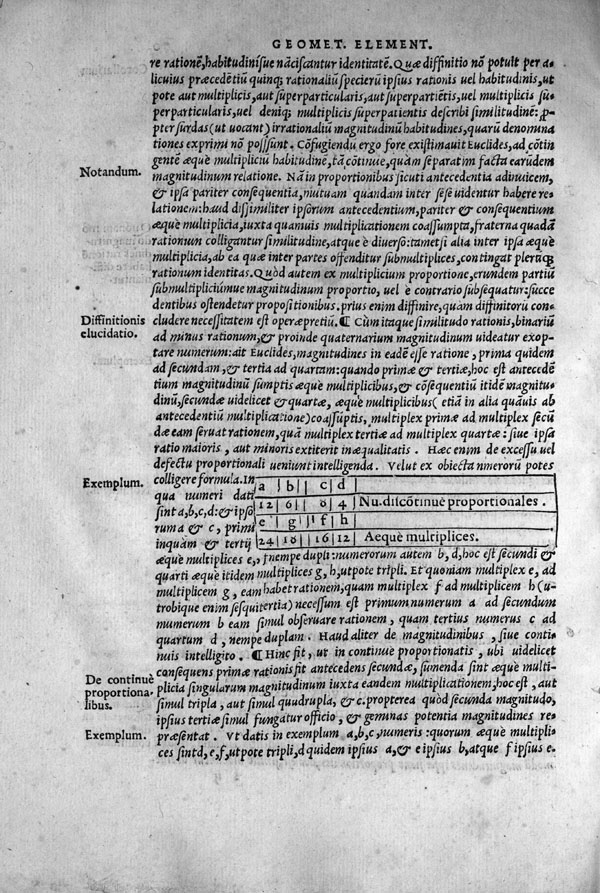 GEOMET. ELEMENT.
re rationẽ, habitudinísue nãciscantur identitatẽ. Quæ diffinitio nõ potuit per a-
licuius præcedẽtiũ quinq; rationaliũ specierũ ipsius rationis uel habitudinis, ut
pote aut multiplicis, aut superparticularis, aut superpartiẽtis, uel multiplicis su-
perparticularis, uel deniq; multiplicis superpatientis describi similitudinẽ: p-
pter surdas (ut uocant) irrationaliũ magnitudinũ habitudines, quarũ denomina
tiones exprimi nõ possunt. Cõfugiendũ ergo fore existimauit Euclides, ad cõtin
Notandum.
gentẽ æquè multipliciũ habitudinẽ, tã cõtinue, quàm separatim facta earũdem
magnitudinum relatione. Nã in proportionibus sicuti antecedentia adinuicem,
& ipsa pariter consequentia, mutuam quandam inter sese uidentur habere re-
lationem: haud dissimiliter ipsorum antecedentium, pariter & consequentium
æquè multiplicia, iuxta quamuis multiplicationem coassumpta, fraterna quadã
rationum colligantur similitudine, atque è diuerso: tametsi alia inter ipsa æquè
multiplicia, ab ea quæ inter partes offenditur submultiplices, contingat plerũq;
rationum identitas. Quòd autem ex multiplicium proportione, eorundem partiũ
submultipliciũmue magnitudinum proportio, uel è contrario subsequatur: succe
dentibus ostendetur propositionibus. prius enim diffinire, quàm diffinitorũ con-
Diffinitionis
elucidatio.
cludere necessitatem est operæpretiũ. ¶ Cùm itaque similitudo rationis, binariũ
ad minus rationum, & proinde quaternarium magnitudinum uideatur exop-
tare numerum: ait Euclides, magnitudines in eadẽ esse ratione, prima quidem
ad secundam, & tertia ad quartam: quando primæ & tertiæ, hoc est antecedẽ
tium magnitudinũ sumptis æquè multiplicibus, & cõsequẽtiũ itidẽ magnitu-
dinũ, secundæ uidelicet & quartæ, æquè multiplicibus (etiã in alia quàuis ab
antecedentiũ multiplicatione) coassũptis, multiplex primæ ad multiplex secũ
dæ eam seruat rationem, quã multiplex tertiæ ad multiplex quartæ: siue ipsa
ratio maioris, aut minoris extiterit inæqualitatis. Hæc enim de excessu uel
defectu proportionali ueniunt intelligenda. Velut ex obiecta numerorũ potes
Exemplum.
colligere formula. In
qua numeri dati
sint a, b, c, d: & ipso
rum a & c, primi
inquàm & tertij
a | b | | c | d |
12 | 6 | | 8 | 4 | Nu. discõtinuè proportionales.
e | g | | f | h |
24 | 18 | | 16 | 12 | Aequè multiplices.
æquè multiplices e, f nempe dupli: numerorum autem b, d, hoc est secundi &
quarti æquè itidem multiplices g, h, utpote tripli. Et quoniam multiplex e, ad
multiplicem g, eam habet rationem, quam multiplex f ad multiplicem h (u-
trobique enim sesquitertia) necessum est primum numerum a ad secundum
numerum b eam simul obseruare rationem, quam tertius numerus c ad
quartum d, nempe duplam. Haud aliter de magnitudinibus, siue conti-
nuis intelligito. ¶ Hinc fit, ut in continuè proportionatis, ubi uidelicet
De continuè
proportiona-
libus.
consequens primæ rationis fit antecedens secundæ, sumenda sint æquè multi-
plicia singularum magnitudinum iuxta eandem multiplicationem, hoc est, aut
simul tripla, aut simul quadrupla, &c. propterea quòd secunda magnitudo,
ipsius tertiæ simul fungatur officio, & geminas potentia magnitudines re-
Exemplum.
præsentat. Vt datis in exemplum a, b, c, numeris: quorum æquè multipli-
ces sint d, e, f, utpote tripli, d quidem ipsius a, & e ipsius b, atque f ipsius c.